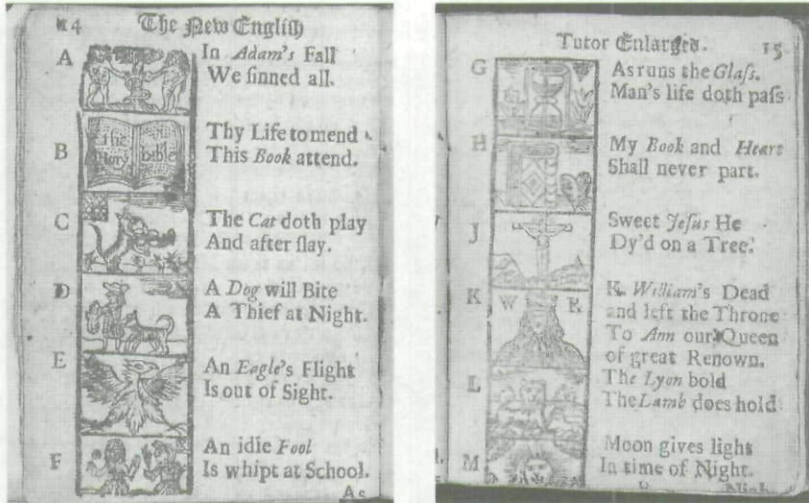 14 The New Engliſh
A
In Adam's Fall
We ſinned all.
B
The Holy Bible
Thy Life to mend
This Book attend.
C
The Cat doth play
And after ſlay.
D
A Dog will Bite
A Thief at Night.
E
An Eagle's Flight
Is out of Sight.
F
An idle Fool
Is whipt at School.
As
Tutor Enlarged. 15
G
As runs the Glaſs.
Man's life doth paſs
H
My Book and Heart
Shall never part.
J
Sweet Jeſus He
Dy'd on a Tree.
K
W R
K. William's Dead
and left the Throne
To Ann our Queen
of great Renown.
L
The Lyon bold
The Lamb does hold
M
Moon gives light
In time of Night.